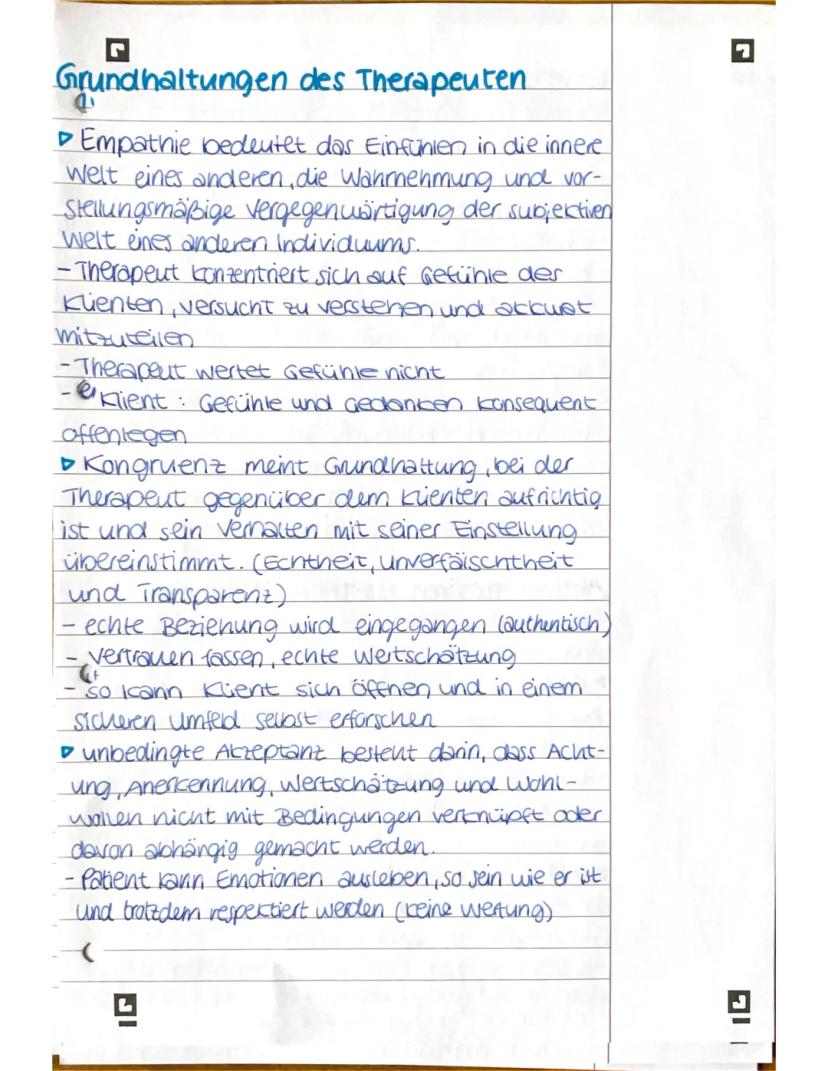 Grundhaltungen des Therapeuten
▷ Empathie bedeutet das Einfühlen in die innere
Welt eines anderen, die Wahrnehmung und vor-
stellungsmäßige Vergegenwärtigung der subjektiven
Welt eines anderen Individuums.
- Therapeut konzentriert sich auf Gefühle des
Klienten, versucht zu verstehen und akkurat
mitzuteilen
- Therapeut wertet Gefühle nicht
- Klient : Gefühle und Gedanken konsequent
offenlegen
▷ Kongruenz meint Grundhaltung, bei der
Therapeut gegenüber dem Klienten aufrichtig
ist und sein Verhalten mit seiner Einstellung
übereinstimmt. (Echtheit, Unverfälschtheit
und Transparenz)
- echte Beziehung wird eingegangen (authentisch)
- Vertrauen fassen, echte Wertschätzung
- so kann Klient sich öffnen und in einem
sicheren Umfeld selbst erforschen
▷ unbedingte Akzeptanz besteht darin, dass Acht-
ung, Anerkennung, Wertschätzung und Wohl-
wollen nicht mit Bedingungen verknüpft oder
davon abhängig gemacht werden.
- Patient kann Emotionen ausleben, so sein wie er ist
und trotzdem respektiert werden (keine Wertung)